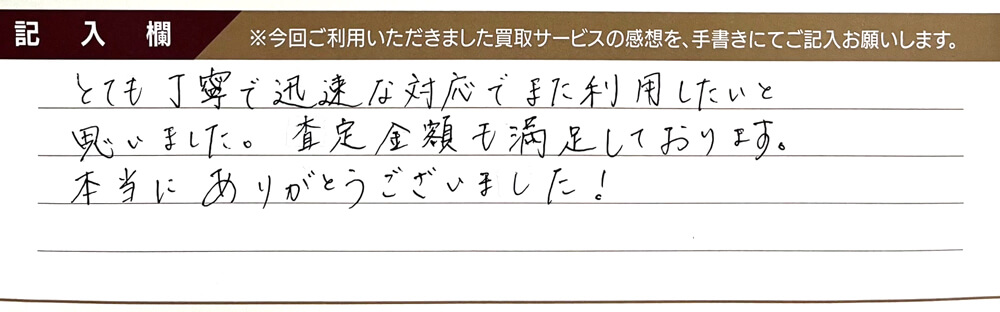 記入欄 ※今回ご利用いただきました買取サービスの感想を、手書きにてご記入お願いします。
とても丁寧で迅速な対応でまた利用したいと
思いました。査定金額も満足しております。
本当にありがとうございました！